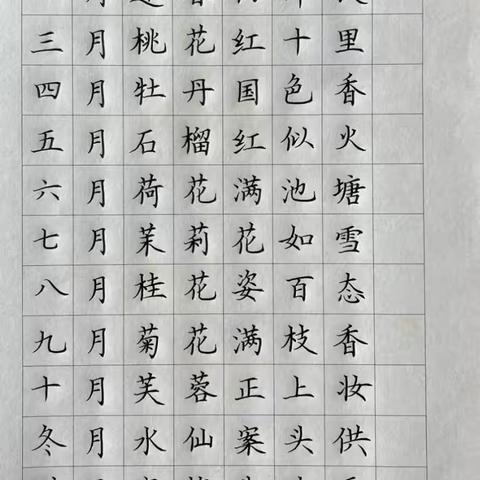 三月桃花红十里
四月牡丹国色香
五月石榴红似火
六月荷花满池塘
七月茉莉花如雪
八月桂花姿百态
九月菊花满枝香
十月芙蓉正上妆
冬月水仙案头供